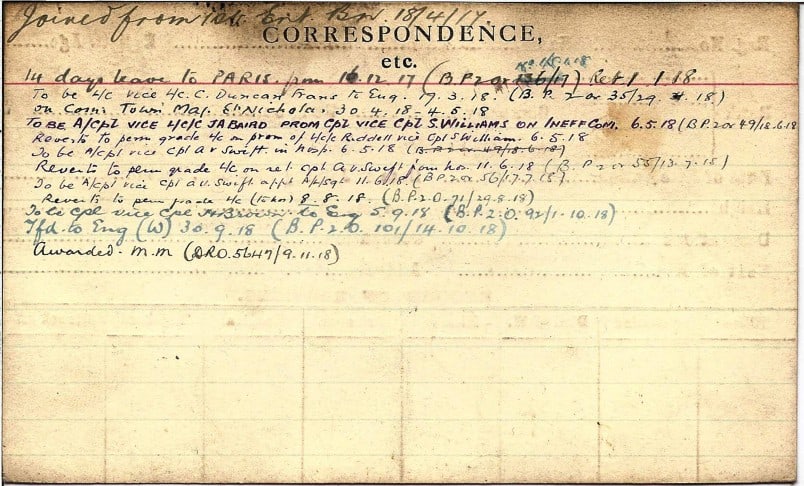 Joined from Ent. Bn. 18/4/17.
CORRESPONDENCE,
etc.
14 days leave to PARIS from 16.12.17 (B.P.2 or 136/17) Ret. 1.1.18
To be L/c vice L/c. C. Duncan Trans to Eng. 17.3.18. (B.P. 2 or 35/29. 4. 18.)
on Com: Town Maj. St Nicholas 30.4.18 - 4.5.18
TO BE A/Cpl VICE L/C JA BAIRD PROM Cpl VICE Cpl S. WILLIAMS ON INEFF COM. 6.5.18 (B.P.2 or 49/18.6.18
Reverts to perm grade L/c on prom of L/c Riddell vice Cpl S William. 6.5.18
To be A/Cpl vice Cpl A V Swift. in hosp. 6.5.18 (B.P.2 or 49/18.6.18)
Reverts to perm grade L/c on ret. Cpl A.V. Swift from hos. 11.6.18 (B.P. 2 or 55/13.7.18)
To be A/Cpl vice Cpl A.V. Swift appt A/Sgt 11.6.18 (B.P.2 or 56/17.7.18)
Reverts to perm grade L/c 8.8.18. (B.P.2.O. 71/29.8.18)
To be Cpl vice Cpl to Eng 5.9.18 (B.P.2.O. 92/1.10.18)
Tfd. to Eng (W) 30.9.18 (B.P.2.O 101/14.10.18)
Awarded. M.M (DRO. 5647/9.11.18)